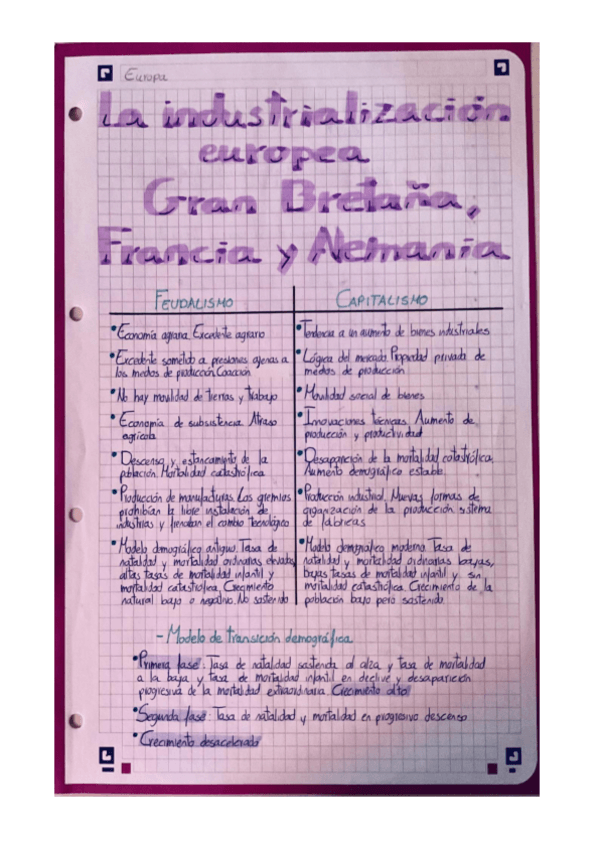 Europa
La industrialización
europea
Gran Bretaña,
Francia y Alemania
FEUDALISMO
CAPITALISMO
• Economía agraria. Excedente agrario
• Excedente sometido a presiones ajenas a
los medios de producción. Coacción
• No hay movilidad de tierras y trabajo
• Economía de subsistencia. Atraso
agrícola
• Descenso y estancamiento de la
población. Mortalidad catastrófica
• Producción de manufacturas. Los gremios
prohibían la libre instalación de
industrias y frenaban el cambio tecnológico
• Modelo demográfico antiguo. Tasa de
natalidad y mortalidad ordinarias elevadas,
altas tasas de mortalidad infantil y
mortalidad catastrófica. Crecimiento
natural bajo o negativo. No sostenido
• Tendencia a un aumento de bienes industriales
• Lógica del mercado. Propiedad privada de
medios de producción
• Movilidad social de bienes
• Innovaciones técnicas. Aumento de
producción y productividad
• Desaparición de la mortalidad catastrófica.
Aumento demográfico estable.
• Producción industrial. Nuevas formas de
organización de la producción: sistema
de fábricas
• Modelo demográfico moderno. Tasa de
natalidad y mortalidad ordinarias bajas,
bajas tasas de mortalidad infantil y sin
mortalidad catastrófica. Crecimiento de la
población bajo pero sostenido
- Modelo de transición demográfica
• Primera fase: Tasa de natalidad sostenida al alza y tasa de mortalidad
a la baja y tasa de mortalidad infantil en declive y desaparición
progresiva de la mortalidad extraordinaria. Crecimiento alto
• Segunda fase: Tasa de natalidad y mortalidad en progresivo descenso
• Crecimiento desacelerado